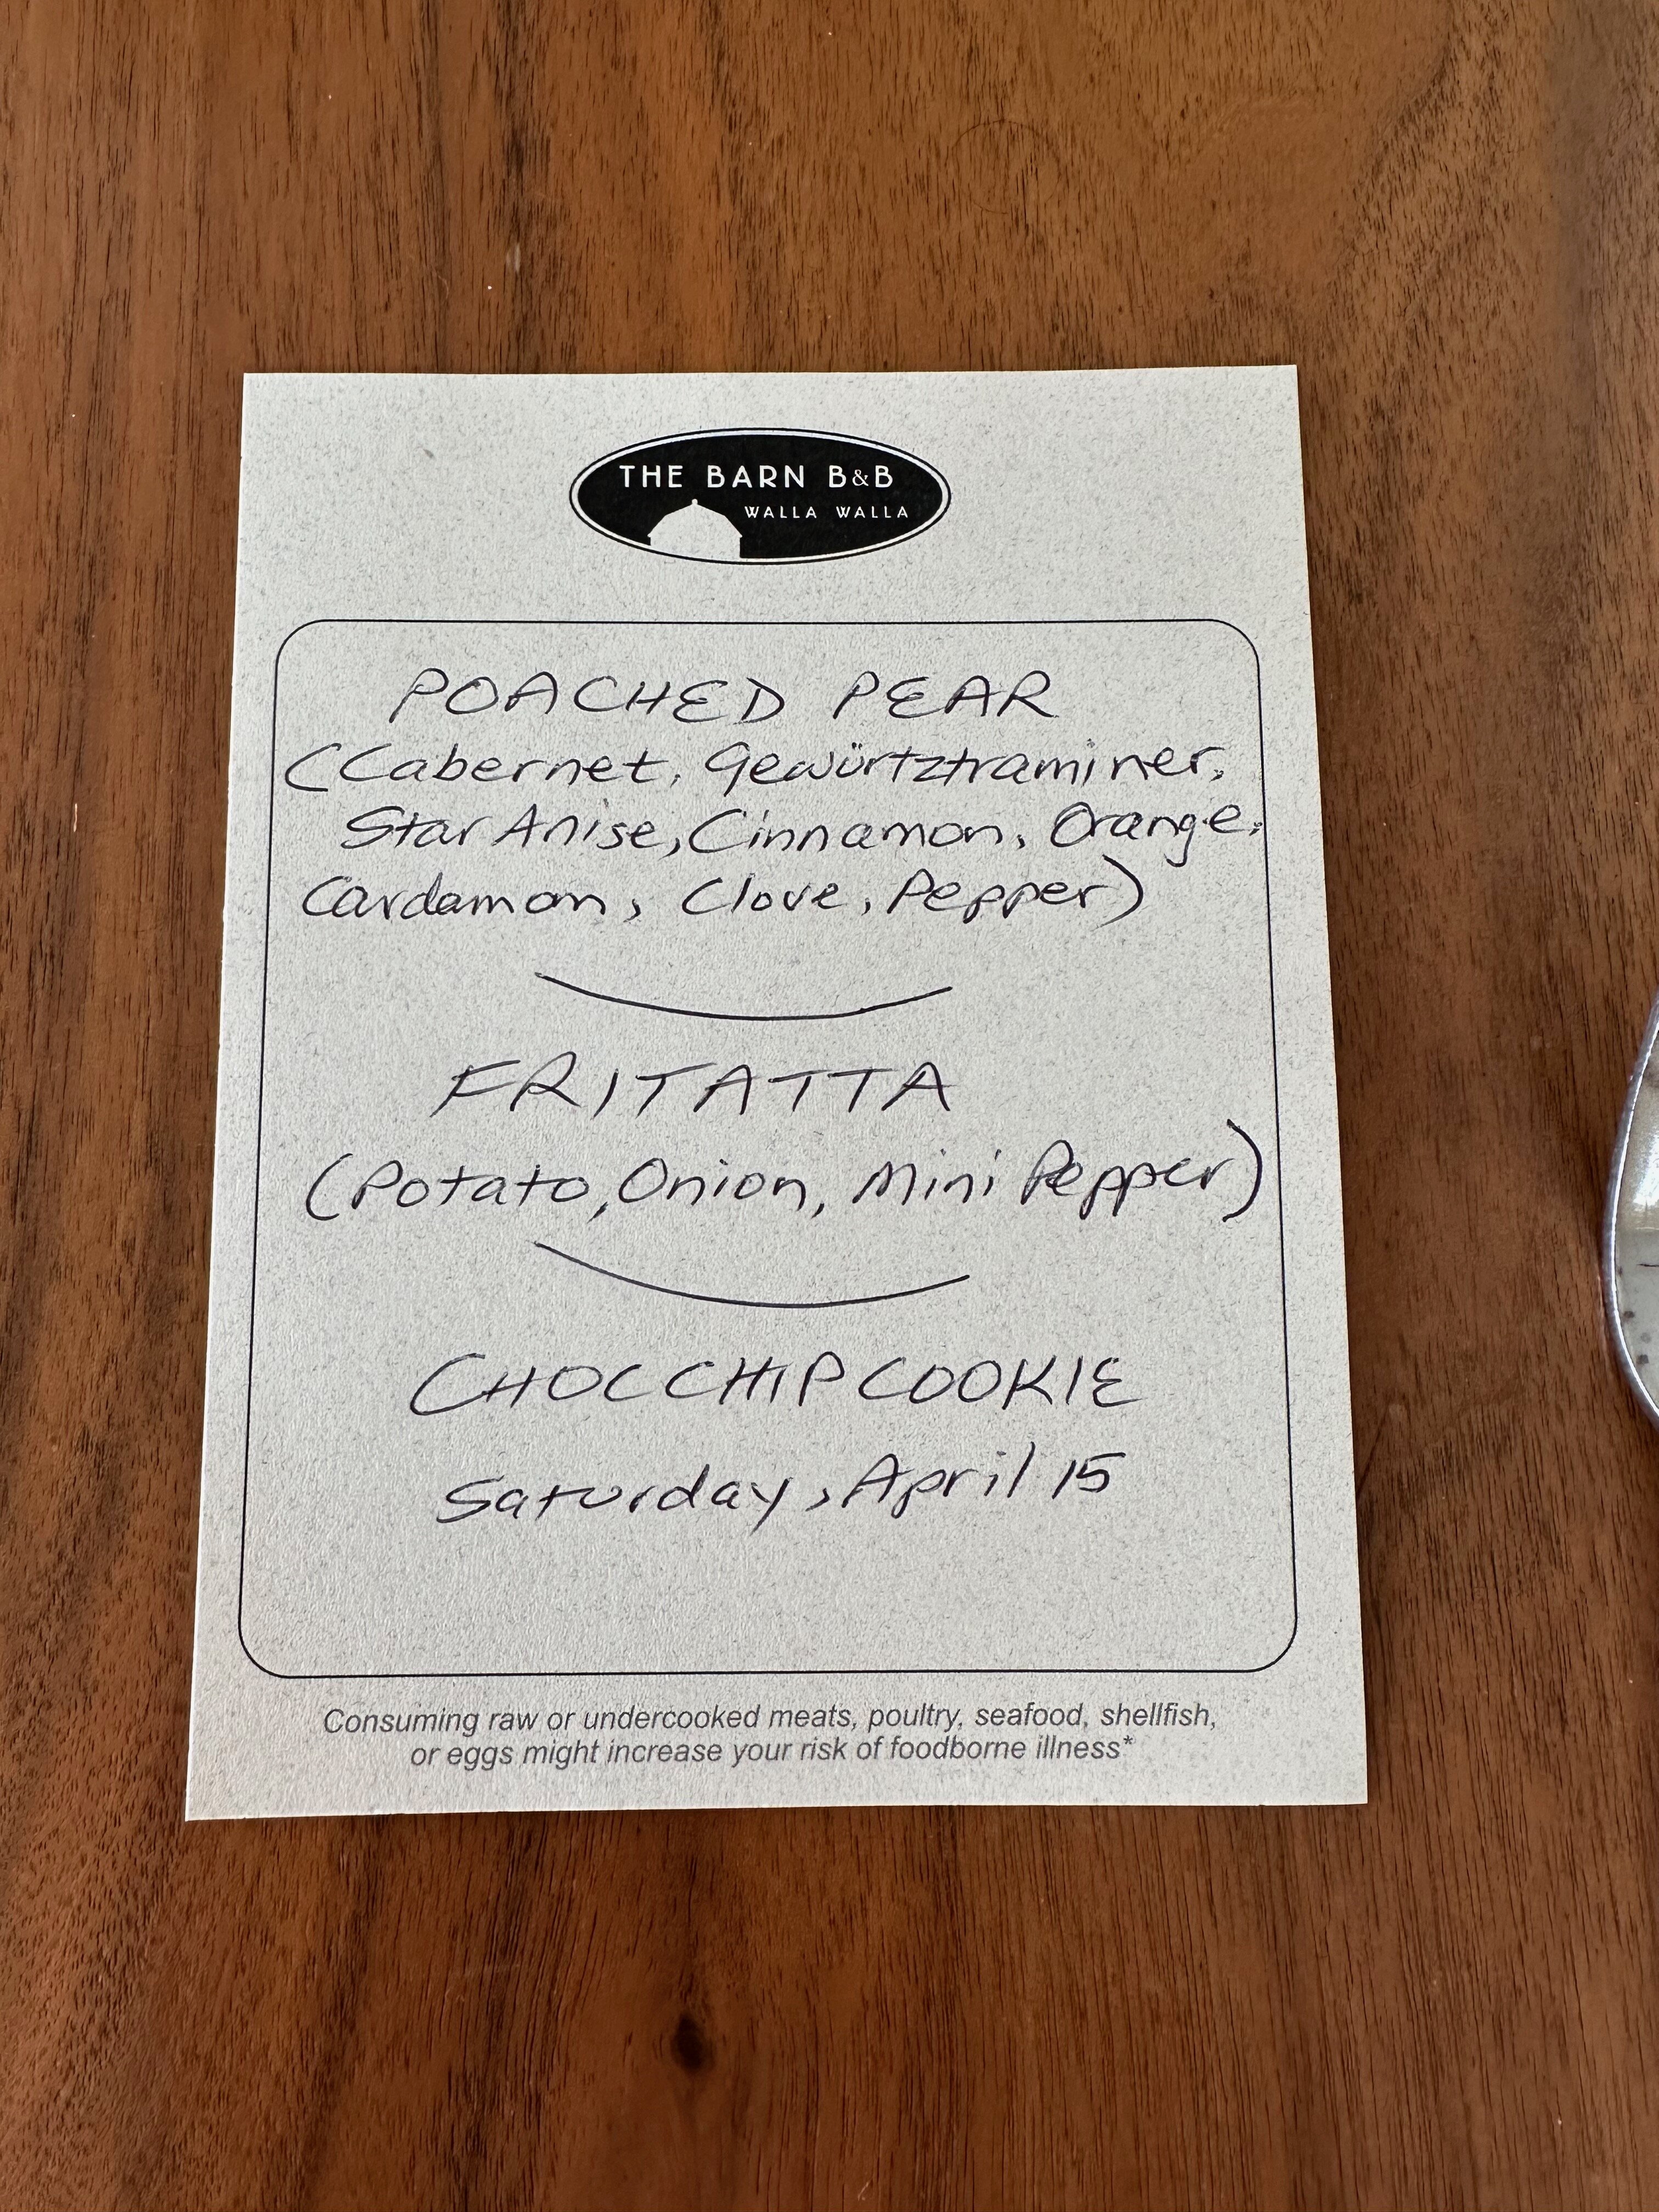 THE BARN B&B
WALLA WALLA
POACHED PEAR
(Cabernet, Gewürtztraminer,
Star Anise, Cinnamon, Orange,
Cardamon, Clove, Pepper)
FRITATTA
(Potato, Onion, Mini Pepper)
CHOC CHIP COOKIE
Saturday, April 15
Consuming raw or undercooked meats, poultry, seafood, shellfish,
or eggs might increase your risk of foodborne illness*